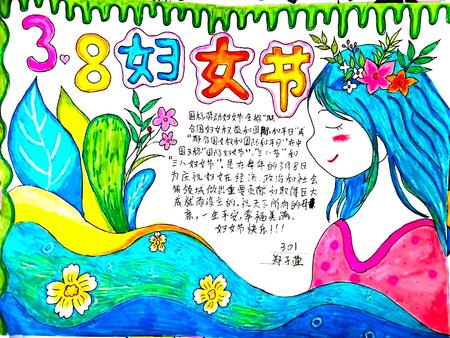 3.8妇女节
国际劳动妇女节全称"联
合国妇女权益和国际和平日"或
"联合国女权和国际和平日"在中
国又称"国际妇女节"、"三八节"和
"三八妇女节"。是在每年的3月8日
为庆祝妇女在经济、政治和社会
等领域做出重要贡献和取得巨大
成就而设立的。祝天下所有的母
亲,一生平安,幸福美满。
妇女节快乐!!!
301
郑子萱